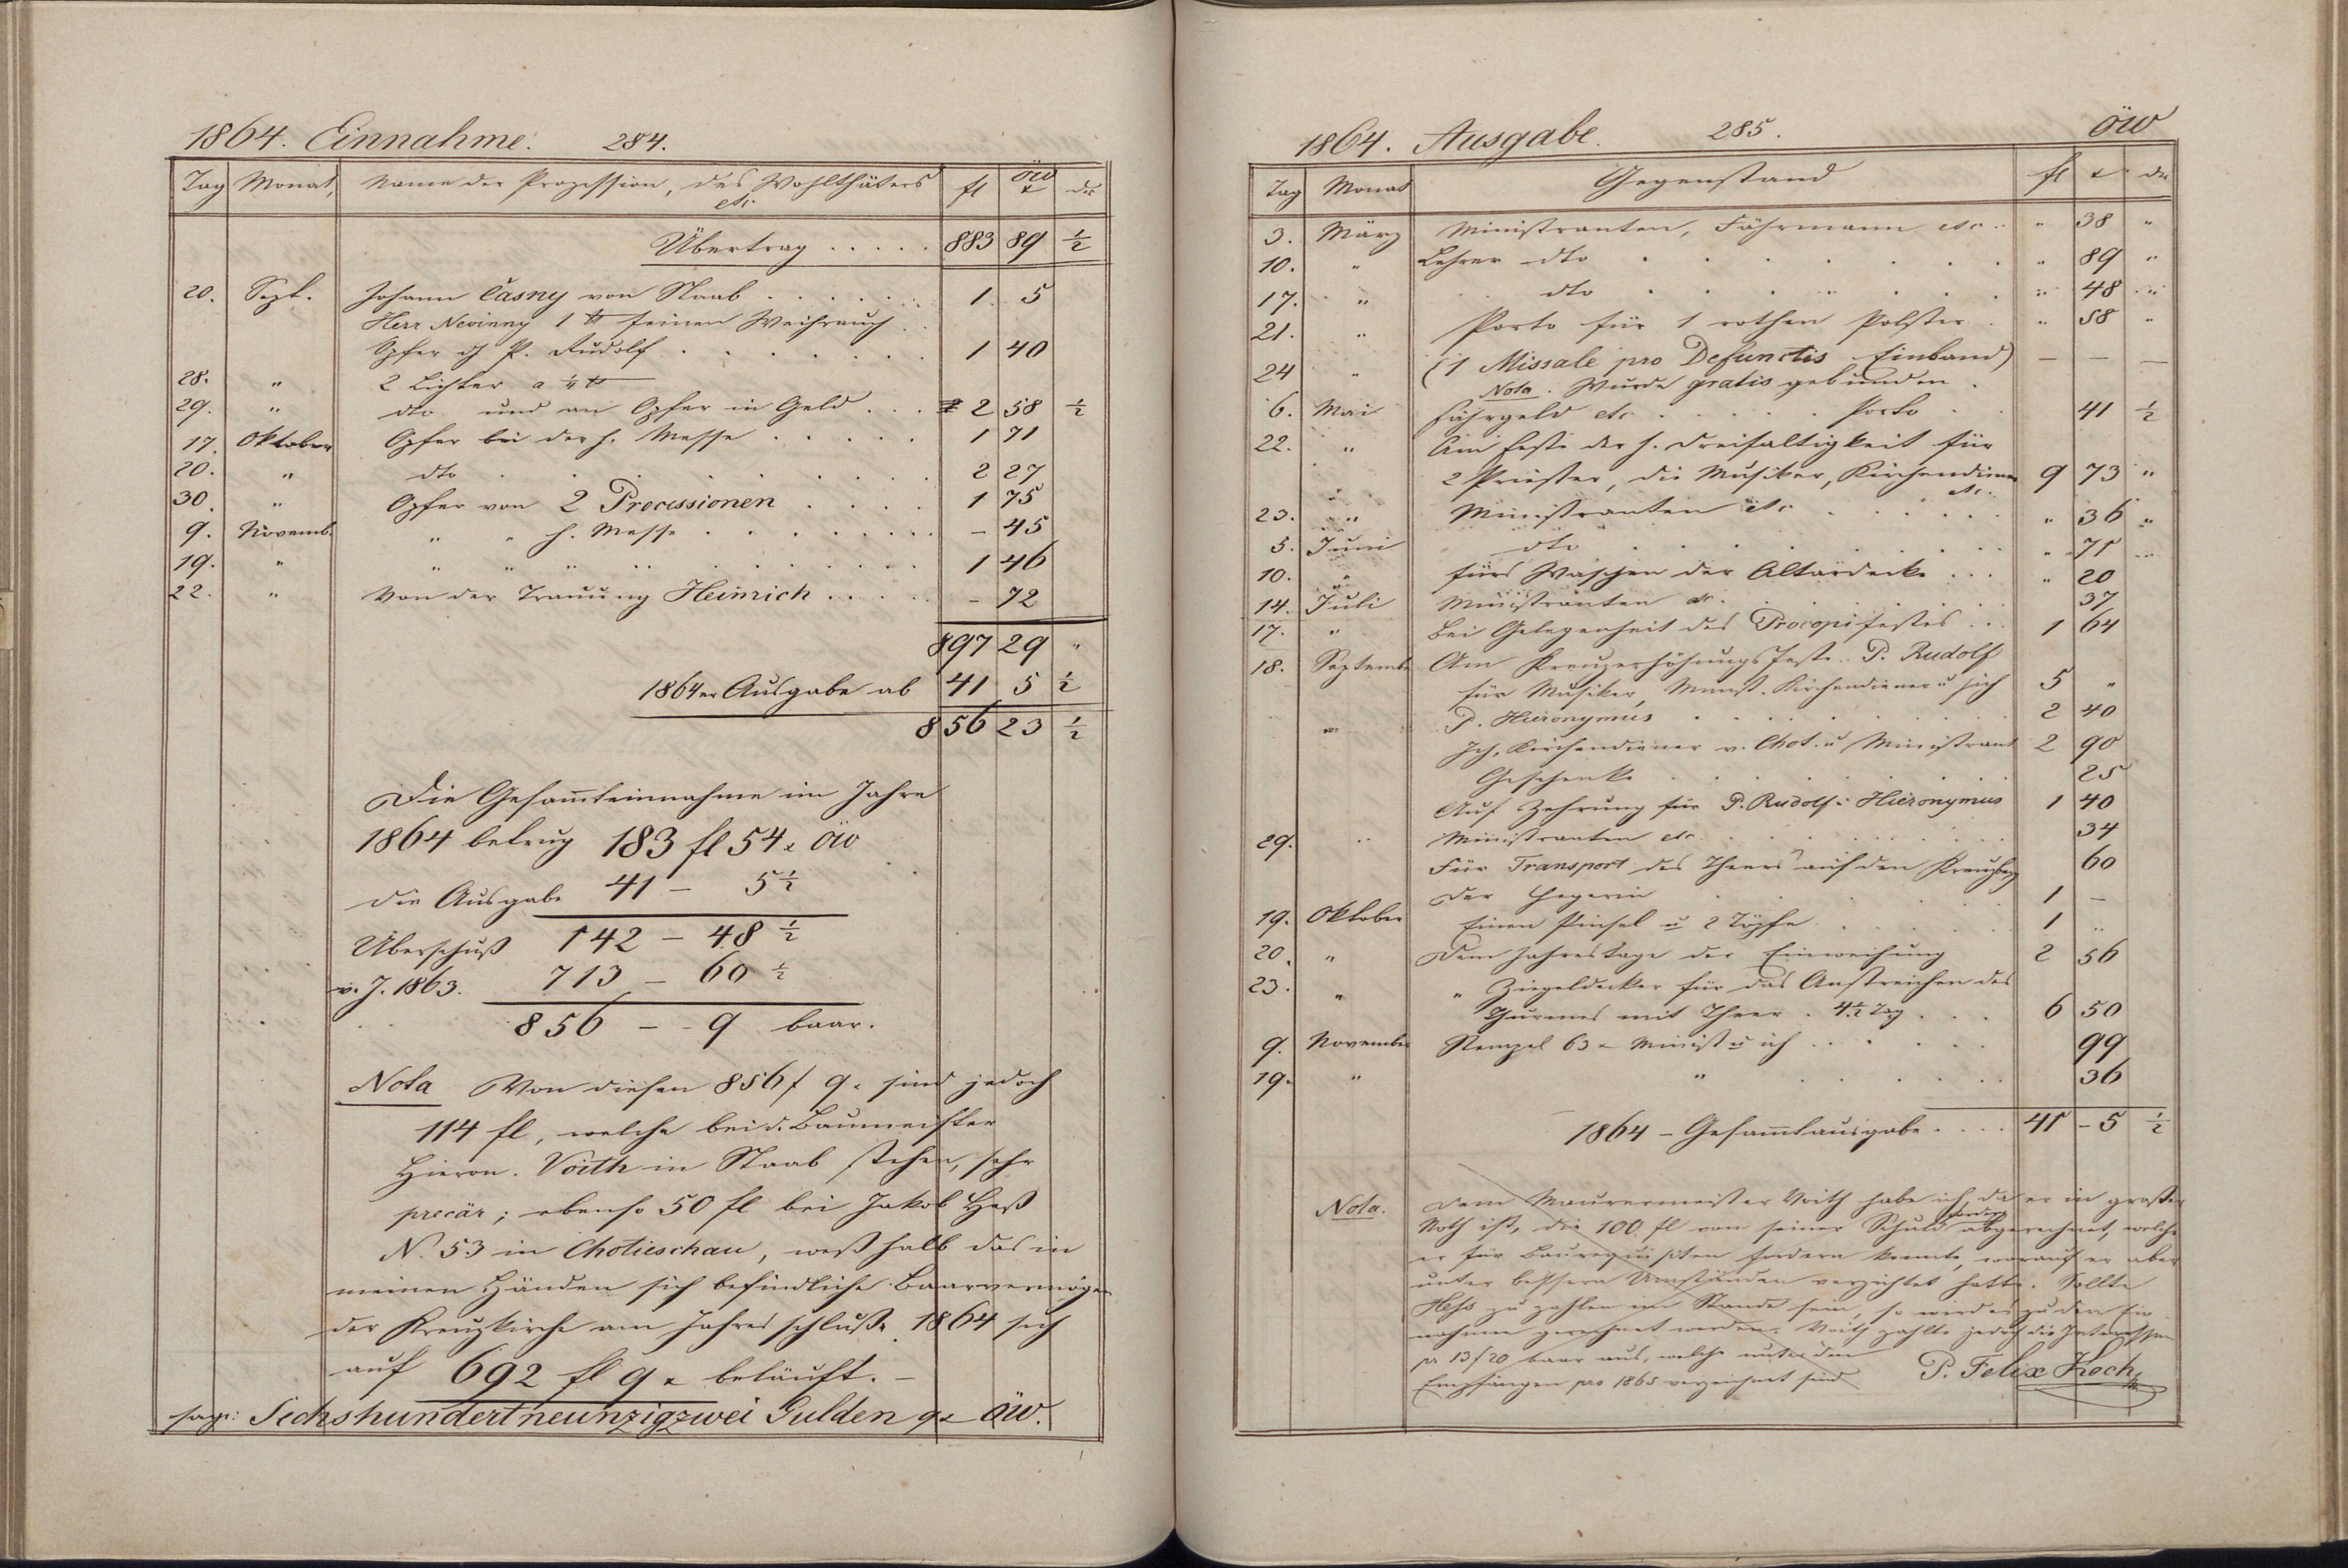 1864. Einnahme. 284.
Tag Monat, Name der Prozession, des Wohlthäters etc. fl öw x dr
Übertrag . . . . . 883 89 ½
20. Sept. Johann Časny von Staab . . . . . . 1 5
Herr Nevinny 1 ℔ feinen Weihrauch
Opfer dh P. Rudolf . . . . . . . 1 40
28. " 2 Lichter a ¼ ℔
29. " dto und an Opfer in Geld . . . 2 58 ½
17. Oktober Opfer bei der h. Messe . . . . . 1 71
20. " dto . . . . . . . . 2 27
30. " Opfer von 2 Processionen . . . . 1 75
9. Novemb. " " h. Messe . . . . . . . . – 45
19. " " " " " . . . . . . . 1 46
22. " Von der Trauung Heinrich . . . . . – 72
897 29 "
1864er Ausgabe ab 41 5 ½
856 23 ½
Die Gesam̄teinnahme im Jahre
1864 betrug 183 fl 54 x öw
die Ausgabe 41 – 5 ½
Überschuß 142 – 48 ½
v. J. 1863. 713 – 60 ½
856 – 9 baar.
Nota Von diesen 856 f 9 x sind jedoch
114 fl, welche bei d. Baumeister
Hieron. Voith in Staab stehen, sehr
precär; ebenso 50 fl bei Jakob Heß
N. 53 in Chotieschau, weßhalb das in
meinen Händen sich befindliche Baarvermögen
der Kreuzkirche am Jahresschluße 1864 sich
auf 692 fl 9 x beläuft. –
sage: Sechshundertneunzigzwei Gulden 9 x öw.
1864. Ausgabe. 285. öw
Tag Monat Gegenstand fl x dr
3. März Ministranten, Fährmann etc. . " 38 "
10. " Lehrer dto . . . . . . . " 89 "
17. " dto . . . . . . . " 48 "
21. " Porto für 1 rothen Polster . " 58 "
24 " (1 Missale pro Defunctis Einband) — — —
Nota. Wurde gratis gebunden.
6. Mai Fährgeld etc . . . . . Porto . . 41 ½
22. " Am Feste der h. Dreifaltigkeit für
2 Priester, die Musiker, Kirchendiener etc. 9 73 "
23. " Ministranten etc . . . . . . " 36 "
5. Juni dto . . . . . . . . " 71 "
10. " fürs Waschen der Altardecke . . . " 20
14. Juli Ministranten etc. . . . . . . 37
17. " Bei Gelegenheit des Procopifestes . . . 1 64
18. Septemb. Am Kreuzerhöhungsfeste. P. Rudolf
für Musiker, Minist. Kirchendiener u sich 5 "
" P. Hieronymus . . . . . . . 2 40
Ich, Kirchendiener v. Chot. u Ministrant 2 90
Geschenke . . . . . . . 25
Auf Zehrung für P. Rudolf u Hieronymus 1 40
29. " Ministranten etc. . . . . . . 34
Für Transport des Theers auf den Kreuzberg 60
der Hegerin . . . . . . 1 –
19. Oktober Einen Pinsel u 2 Töpfe . . . . . 1 "
20. " Dem Jahrestage der Einweihung 2 56
23. " " Ziegeldecker für das Anstreichen des
Thurmes mit Theer . 4½ Tag . . . 6 50
9. November Stempel 63 x Minist u ich . . . . . 99
19. " " . . . . . . 36
1864 – Gesam̄tausgabe . . . . 41 – 5 ½
Nota. Dem Maurermeister Voith habe ich, da er in großer
Noth ist, die 100 fl von seiner Schuld abgerechnet, welche
er für Baurequisiten fordern konnte, worauf er aber
unter bessern Umständen verzichtet hatte. Sollte
Hess zu zahlen im Stande sein, so wird es zu den Ein
nahmen gerechnet werden. Voith zahlte jedoch die Interessen
pr 13/20 baar aus, welche unter den
Empfängen pro 1865 verzeichnet sind P. Felix Koch